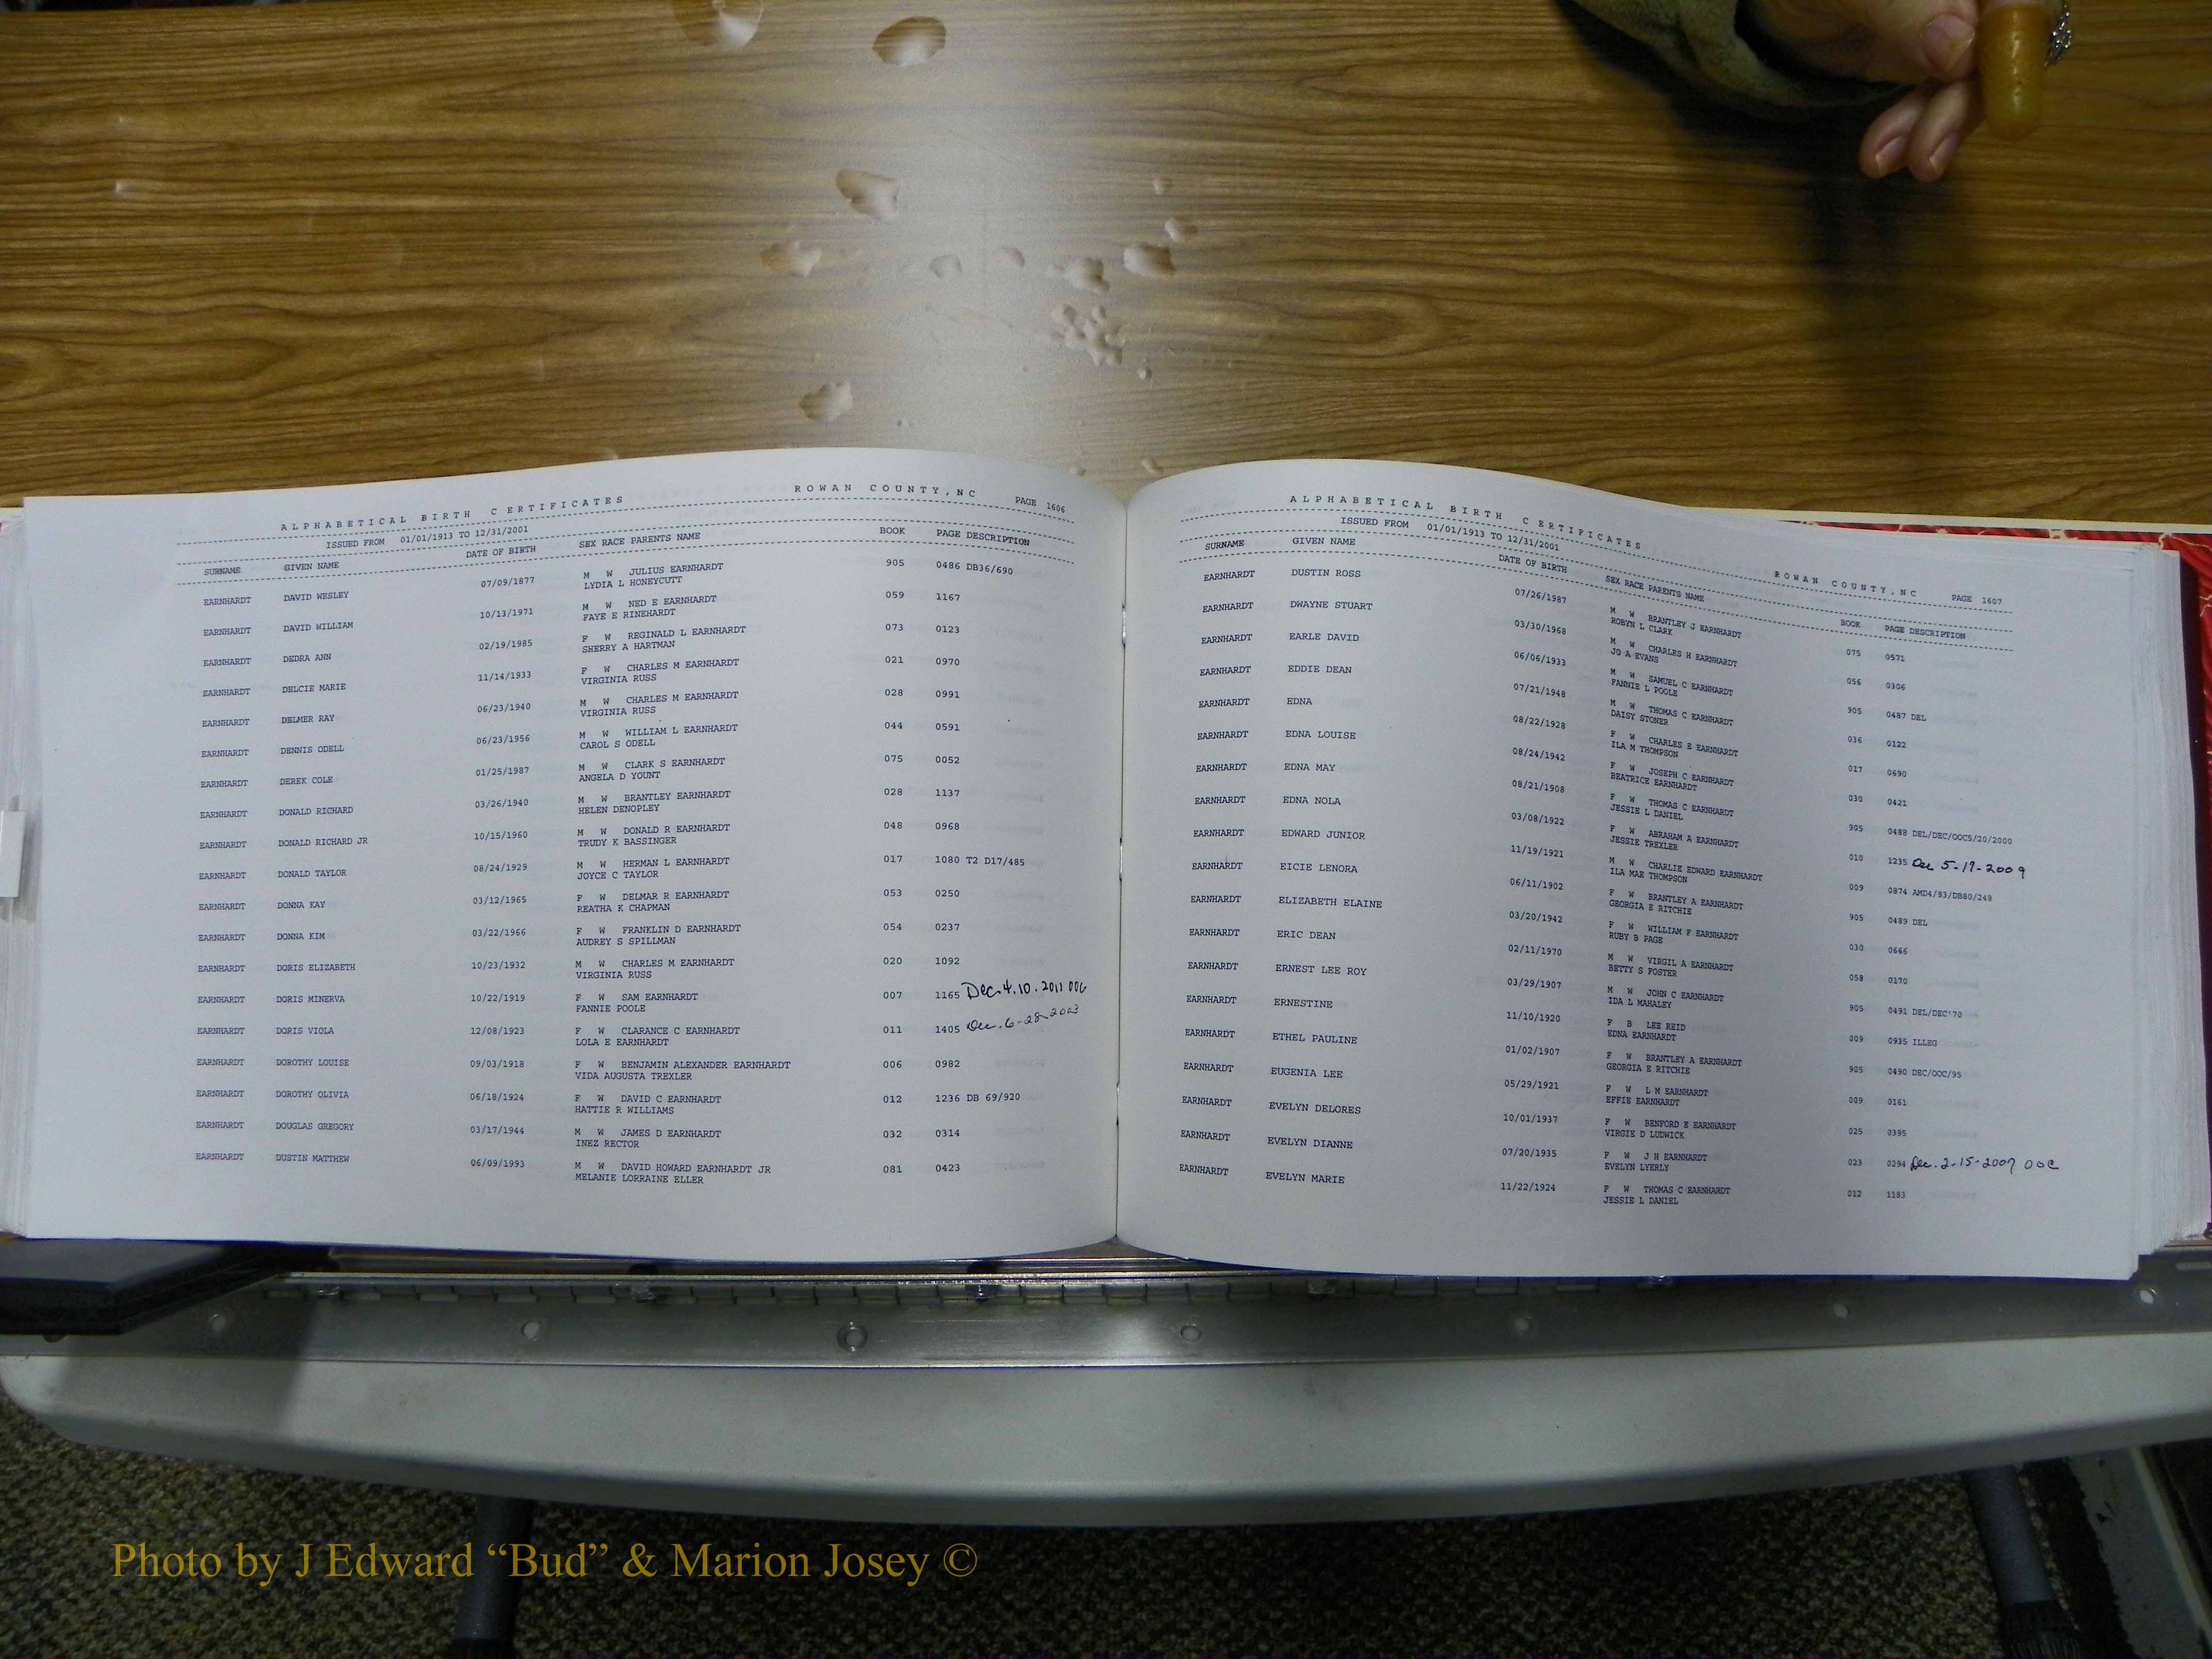 ALPHABETICAL BIRTH CERTIFICATES ROWAN COUNTY, NC PAGE 1606
ISSUED FROM 01/01/1913 TO 12/31/2001
SURNAME GIVEN NAME DATE OF BIRTH SEX RACE PARENTS NAME BOOK PAGE DESCRIPTION
EARNHARDT DAVID WESLEY 07/09/1877 M W JULIUS EARNHARDT 905 0486 DB36/690
LYDIA L HONEYCUTT
EARNHARDT DAVID WILLIAM 10/13/1971 M W NED E EARNHARDT 059 1167
FAYE E RINEHARDT
EARNHARDT DEDRA ANN 02/19/1985 F W REGINALD L EARNHARDT 073 0123
SHERRY A HARTMAN
EARNHARDT DELCIE MARIE 11/14/1933 F W CHARLES M EARNHARDT 021 0970
VIRGINIA RUSS
EARNHARDT DELMER RAY 06/23/1940 M W CHARLES M EARNHARDT 028 0991
VIRGINIA RUSS
EARNHARDT DENNIS ODELL 06/23/1956 M W WILLIAM L EARNHARDT 044 0591
CAROL S ODELL
EARNHARDT DEREK COLE 01/25/1987 M W CLARK S EARNHARDT 075 0052
ANGELA D YOUNT
EARNHARDT DONALD RICHARD 03/26/1940 M W BRANTLEY EARNHARDT 028 1137
HELEN DENOPLEY
EARNHARDT DONALD RICHARD JR 10/15/1960 M W DONALD R EARNHARDT 048 0968
TRUDY K BASSINGER
EARNHARDT DONALD TAYLOR 08/24/1929 M W HERMAN L EARNHARDT 017 1080 T2 D17/485
JOYCE C TAYLOR
EARNHARDT DONNA KAY 03/12/1965 F W DELMAR R EARNHARDT 053 0250
REATHA K CHAPMAN
EARNHARDT DONNA KIM 03/22/1966 F W FRANKLIN D EARNHARDT 054 0237
AUDREY S SPILLMAN
EARNHARDT DORIS ELIZABETH 10/23/1932 M W CHARLES M EARNHARDT 020 1092
VIRGINIA RUSS
EARNHARDT DORIS MINERVA 10/22/1919 F W SAM EARNHARDT 007 1165 Dec. 4.10.2011 OOC
FANNIE POOLE
EARNHARDT DORIS VIOLA 12/08/1923 F W CLARANCE C EARNHARDT 011 1405 Dec. 6-28-2003
LOLA E EARNHARDT
EARNHARDT DOROTHY LOUISE 09/03/1918 F W BENJAMIN ALEXANDER EARNHARDT 006 0982
VIDA AUGUSTA TREXLER
EARNHARDT DOROTHY OLIVIA 06/18/1924 F W DAVID C EARNHARDT 012 1236 DB 69/920
HATTIE R WILLIAMS
EARNHARDT DOUGLAS GREGORY 03/17/1944 M W JAMES D EARNHARDT 032 0314
INEZ RECTOR
EARNHARDT DUSTIN MATTHEW 06/09/1993 M W DAVID HOWARD EARNHARDT JR 081 0423
MELANIE LORRAINE ELLER
ALPHABETICAL BIRTH CERTIFICATES ROWAN COUNTY, NC PAGE 1607
ISSUED FROM 01/01/1913 TO 12/31/2001
SURNAME GIVEN NAME DATE OF BIRTH SEX RACE PARENTS NAME BOOK PAGE DESCRIPTION
EARNHARDT DUSTIN ROSS 07/26/1987 M W BRANTLEY J EARNHARDT 075 0571
ROBYN L CLARK
EARNHARDT DWAYNE STUART 03/30/1968 M W CHARLES H EARNHARDT 056 0306
JO A EVANS
EARNHARDT EARLE DAVID 06/06/1933 M W SAMUEL C EARNHARDT 905 0487 DEL
FANNIE L POOLE
EARNHARDT EDDIE DEAN 07/21/1948 M W THOMAS C EARNHARDT 036 0122
DAISY STONER
EARNHARDT EDNA 08/22/1928 F W CHARLES E EARNHARDT 017 0690
ILA M THOMPSON
EARNHARDT EDNA LOUISE 08/24/1942 F W JOSEPH C EARNHARDT 030 0421
BEATRICE EARNHARDT
EARNHARDT EDNA MAY 08/21/1908 F W THOMAS C EARNHARDT 905 0488 DEL/DEC/OOC5/20/2000
JESSIE L DANIEL
EARNHARDT EDNA NOLA 03/08/1922 F W ABRAHAM A EARNHARDT 010 1235 Dec 5-17-2009
JESSIE TREXLER
EARNHARDT EDWARD JUNIOR 11/19/1921 M W CHARLIE EDWARD EARNHARDT 009 0874 AMD4/83/DB80/248
ILA MAE THOMPSON
EARNHARDT EICIE LENORA 06/11/1902 F W BRANTLEY A EARNHARDT 905 0489 DEL
GEORGIA E RITCHIE
EARNHARDT ELIZABETH ELAINE 03/20/1942 F W WILLIAM F EARNHARDT 030 0666
RUBY B PAGE
EARNHARDT ERIC DEAN 02/11/1970 M W VIRGIL A EARNHARDT 058 0170
BETTY S FOSTER
EARNHARDT ERNEST LEE ROY 03/29/1907 M W JOHN C EARNHARDT 905 0491 DEL/DEC'70
IDA L MAHALEY
EARNHARDT ERNESTINE 11/10/1920 F B LEE REID 009 0935 ILLEG
EDNA EARNHARDT
EARNHARDT ETHEL PAULINE 01/02/1907 F W BRANTLEY A EARNHARDT 905 0490 DEC/OOC/95
GEORGIA E RITCHIE
EARNHARDT EUGENIA LEE 05/29/1921 F W L M EARNHARDT 009 0161
EFFIE EARNHARDT
EARNHARDT EVELYN DELORES 10/01/1937 F W BENFORD E EARNHARDT 025 0395
VIRGIE D LUDWICK
EARNHARDT EVELYN DIANNE 07/20/1935 F W J H EARNHARDT 023 0294 Dec. 2-15-2007 OOC
EVELYN LYERLY
EARNHARDT EVELYN MARIE 11/22/1924 F W THOMAS C EARNHARDT 012 1183
JESSIE L DANIEL
Photo by J Edward “Bud” & Marion Josey ©